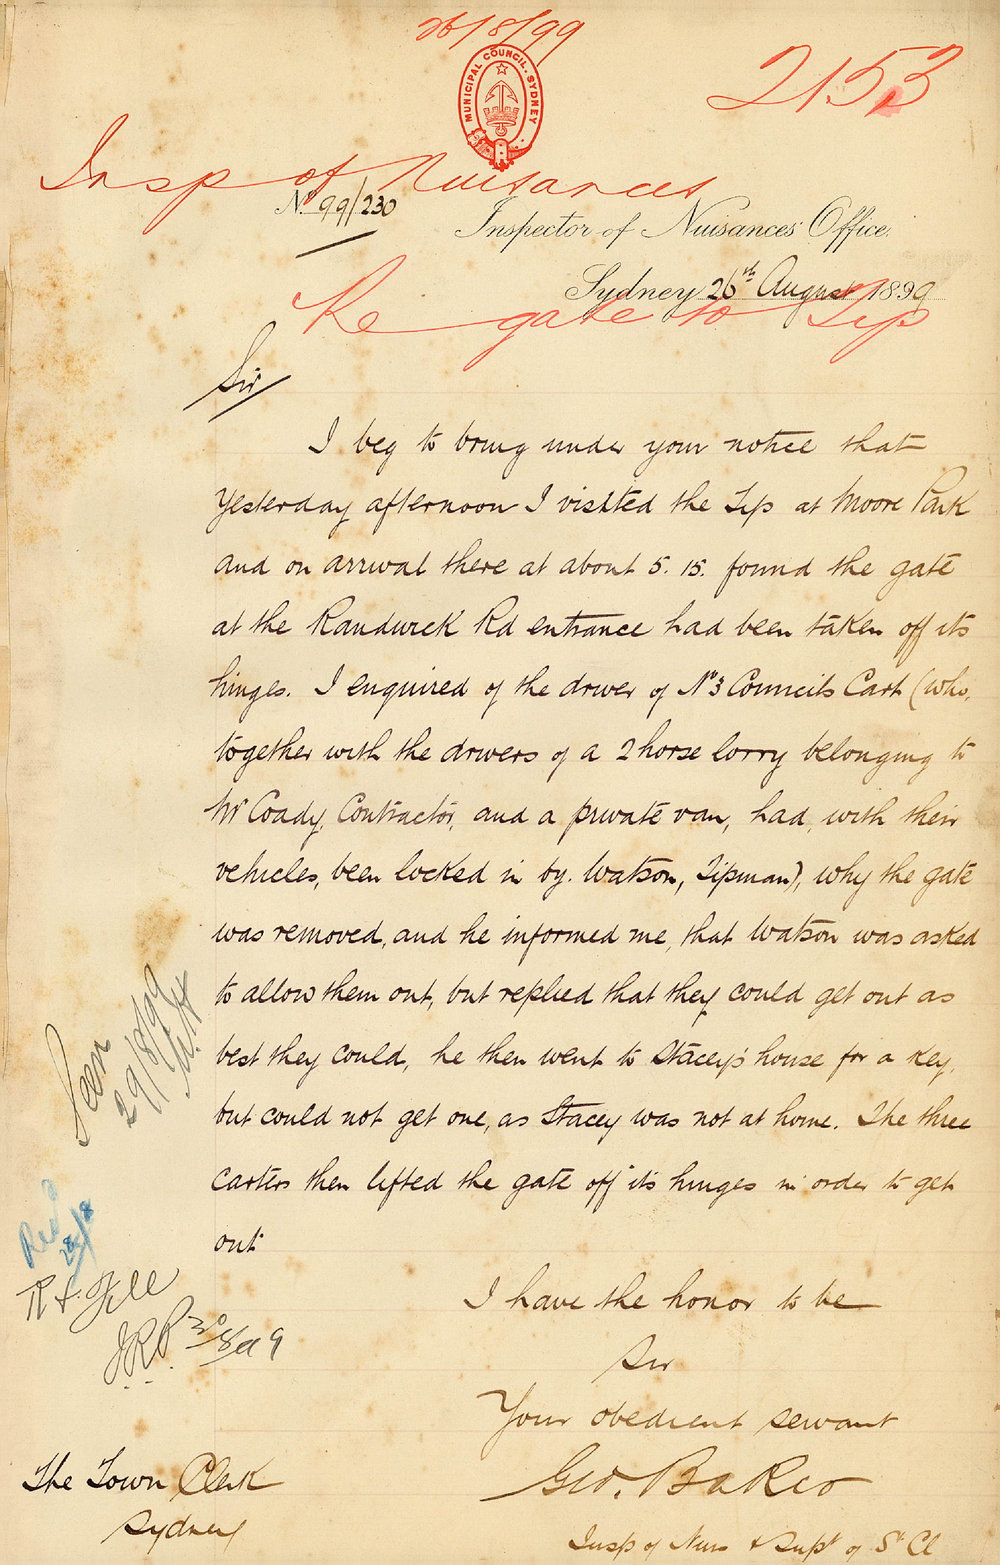 26/8/99
MUNICIPAL COUNCIL. SYDNEY
2153
Insp of Nuisances
No. 99/230
Inspector of Nuisances' Office.
Sydney 26th August 1899
Re gate to Tip
Sir
I beg to bring under your notice that
yesterday afternoon I visited the Tip at Moore Park
and on arrival there at about 5.15. found the gate
at the Randwick Rd entrance had been taken off its
hinges. I enquired of the driver of No 3 Councils Cart (who,
together with the drivers of a 2 horse lorry belonging to
Mr Coady, Contractor, and a private van, had, with their
vehicles, been locked in by Watson, Tipman), why the gate
was removed, and he informed me, that Watson was asked
to allow them out, but replied that they could get out as
best they could, he then went to Stacey's house for a key,
but could not get one, as Stacey was not at home. The three
carters then lifted the gate off its hinges in order to get
out
I have the honor to be
Sir
Your obedient servant
Geo. Baker
Insp of Nuis & Supt of St Cl
Seen
29/8/99
Recd
28/8
J.R.P. 30/8/99
The Town Clerk
Sydney